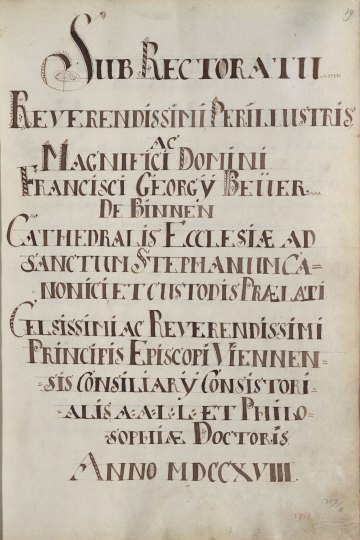 19
SUB RECTORATU
REVERENDISSIMI PERILLUSTRIS
AC
MAGNIFICI DOMINI
FRANCISCI GEORGÿ BEÜER
DE BINNEN
CATHEDRALIS ECCLESIÆ AD
SANCTUM STEPHANIUM CA=
NONICI ET CUSTODIS PRÆLATI
CELSISSIMI AC REVERENDISSIMI
PRINCIPIS EPISCOPI VIENNEN=
SIS CONSILIARÿ CONSISTORI=
ALIS A.A.L.L. ET PHILO=
SOPHIÆ DOCTORIS
ANNO MDCCXVIII.